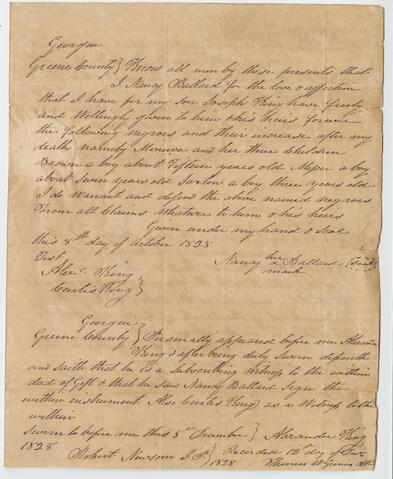 Georgia
Greene County } Know all men by these presents that
I Nancy Ballard for the love & affection
that I have for my Son Joseph King have freely
and Willingly given to him & his heirs forever
the following negroes and their increase after my
death namely Minerva and her three Children
Brown a boy about Fifteen years old a boy
about Seven years old a boy three years old
I do Warrant and defend the above named negroes
From all Claims Whatever to him & his heirs
Given under my hand & Seal
this 8th day of October 1828
Test
Nancy her x mark Ballard (Seal)
Alexr King
Curtis King }
Georgia
Greene County } Personally appeared before me Alexander
King & after being duly Sworn deposeth
and saith that he is a Subscribing Witness to the within
deed of Gift & that he saw Nancy Ballard Sign the
within instrument Also Curtis King as a Witness to the
within
Sworn to before me this 5th December } Alexander King
1828
Robert Newsom J.P. } Recorded 12th day of
1828
Thomas W